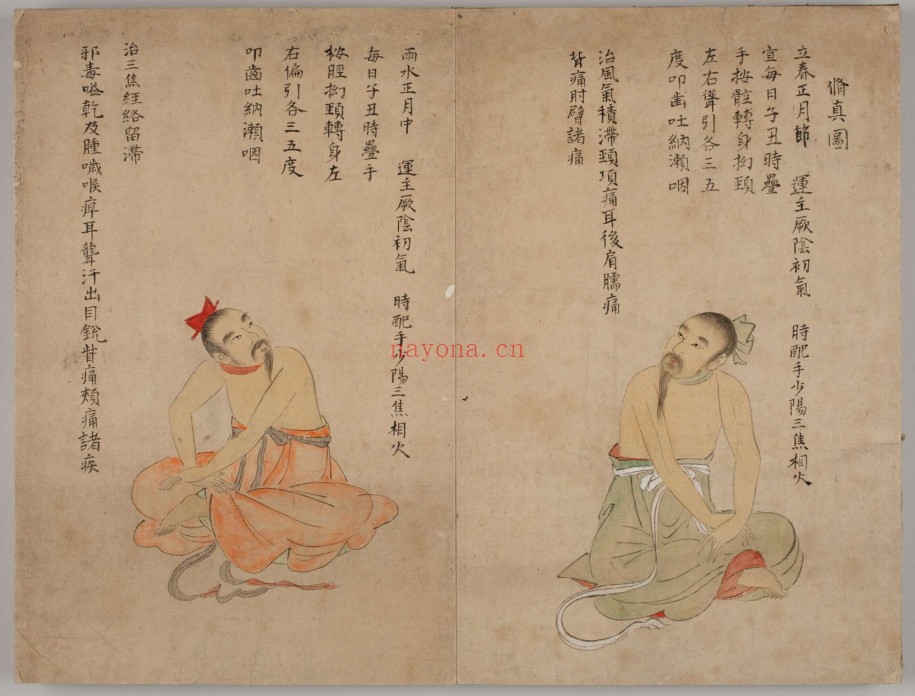 脩真圖
立春正月節 運主厥陰初氣 時配手少陽三焦相火
宜每日子丑時疊
手按髀轉身拗頸
左右聳引各三五
度叩齒吐納漱咽
治風氣積滯頸項痛耳後肩臑痛
背痛肘臂諸痛
雨水正月中 運主厥陰初氣 時配手少陽三焦相火
每日子丑時疊手
按脛拗頸轉身左
右偏引各三五度
叩齒吐納漱咽
治三焦經絡留滯
邪毒嗌乾及腫噦喉痺耳聾汗出目銳眥痛頰痛諸疾
nayona.cn